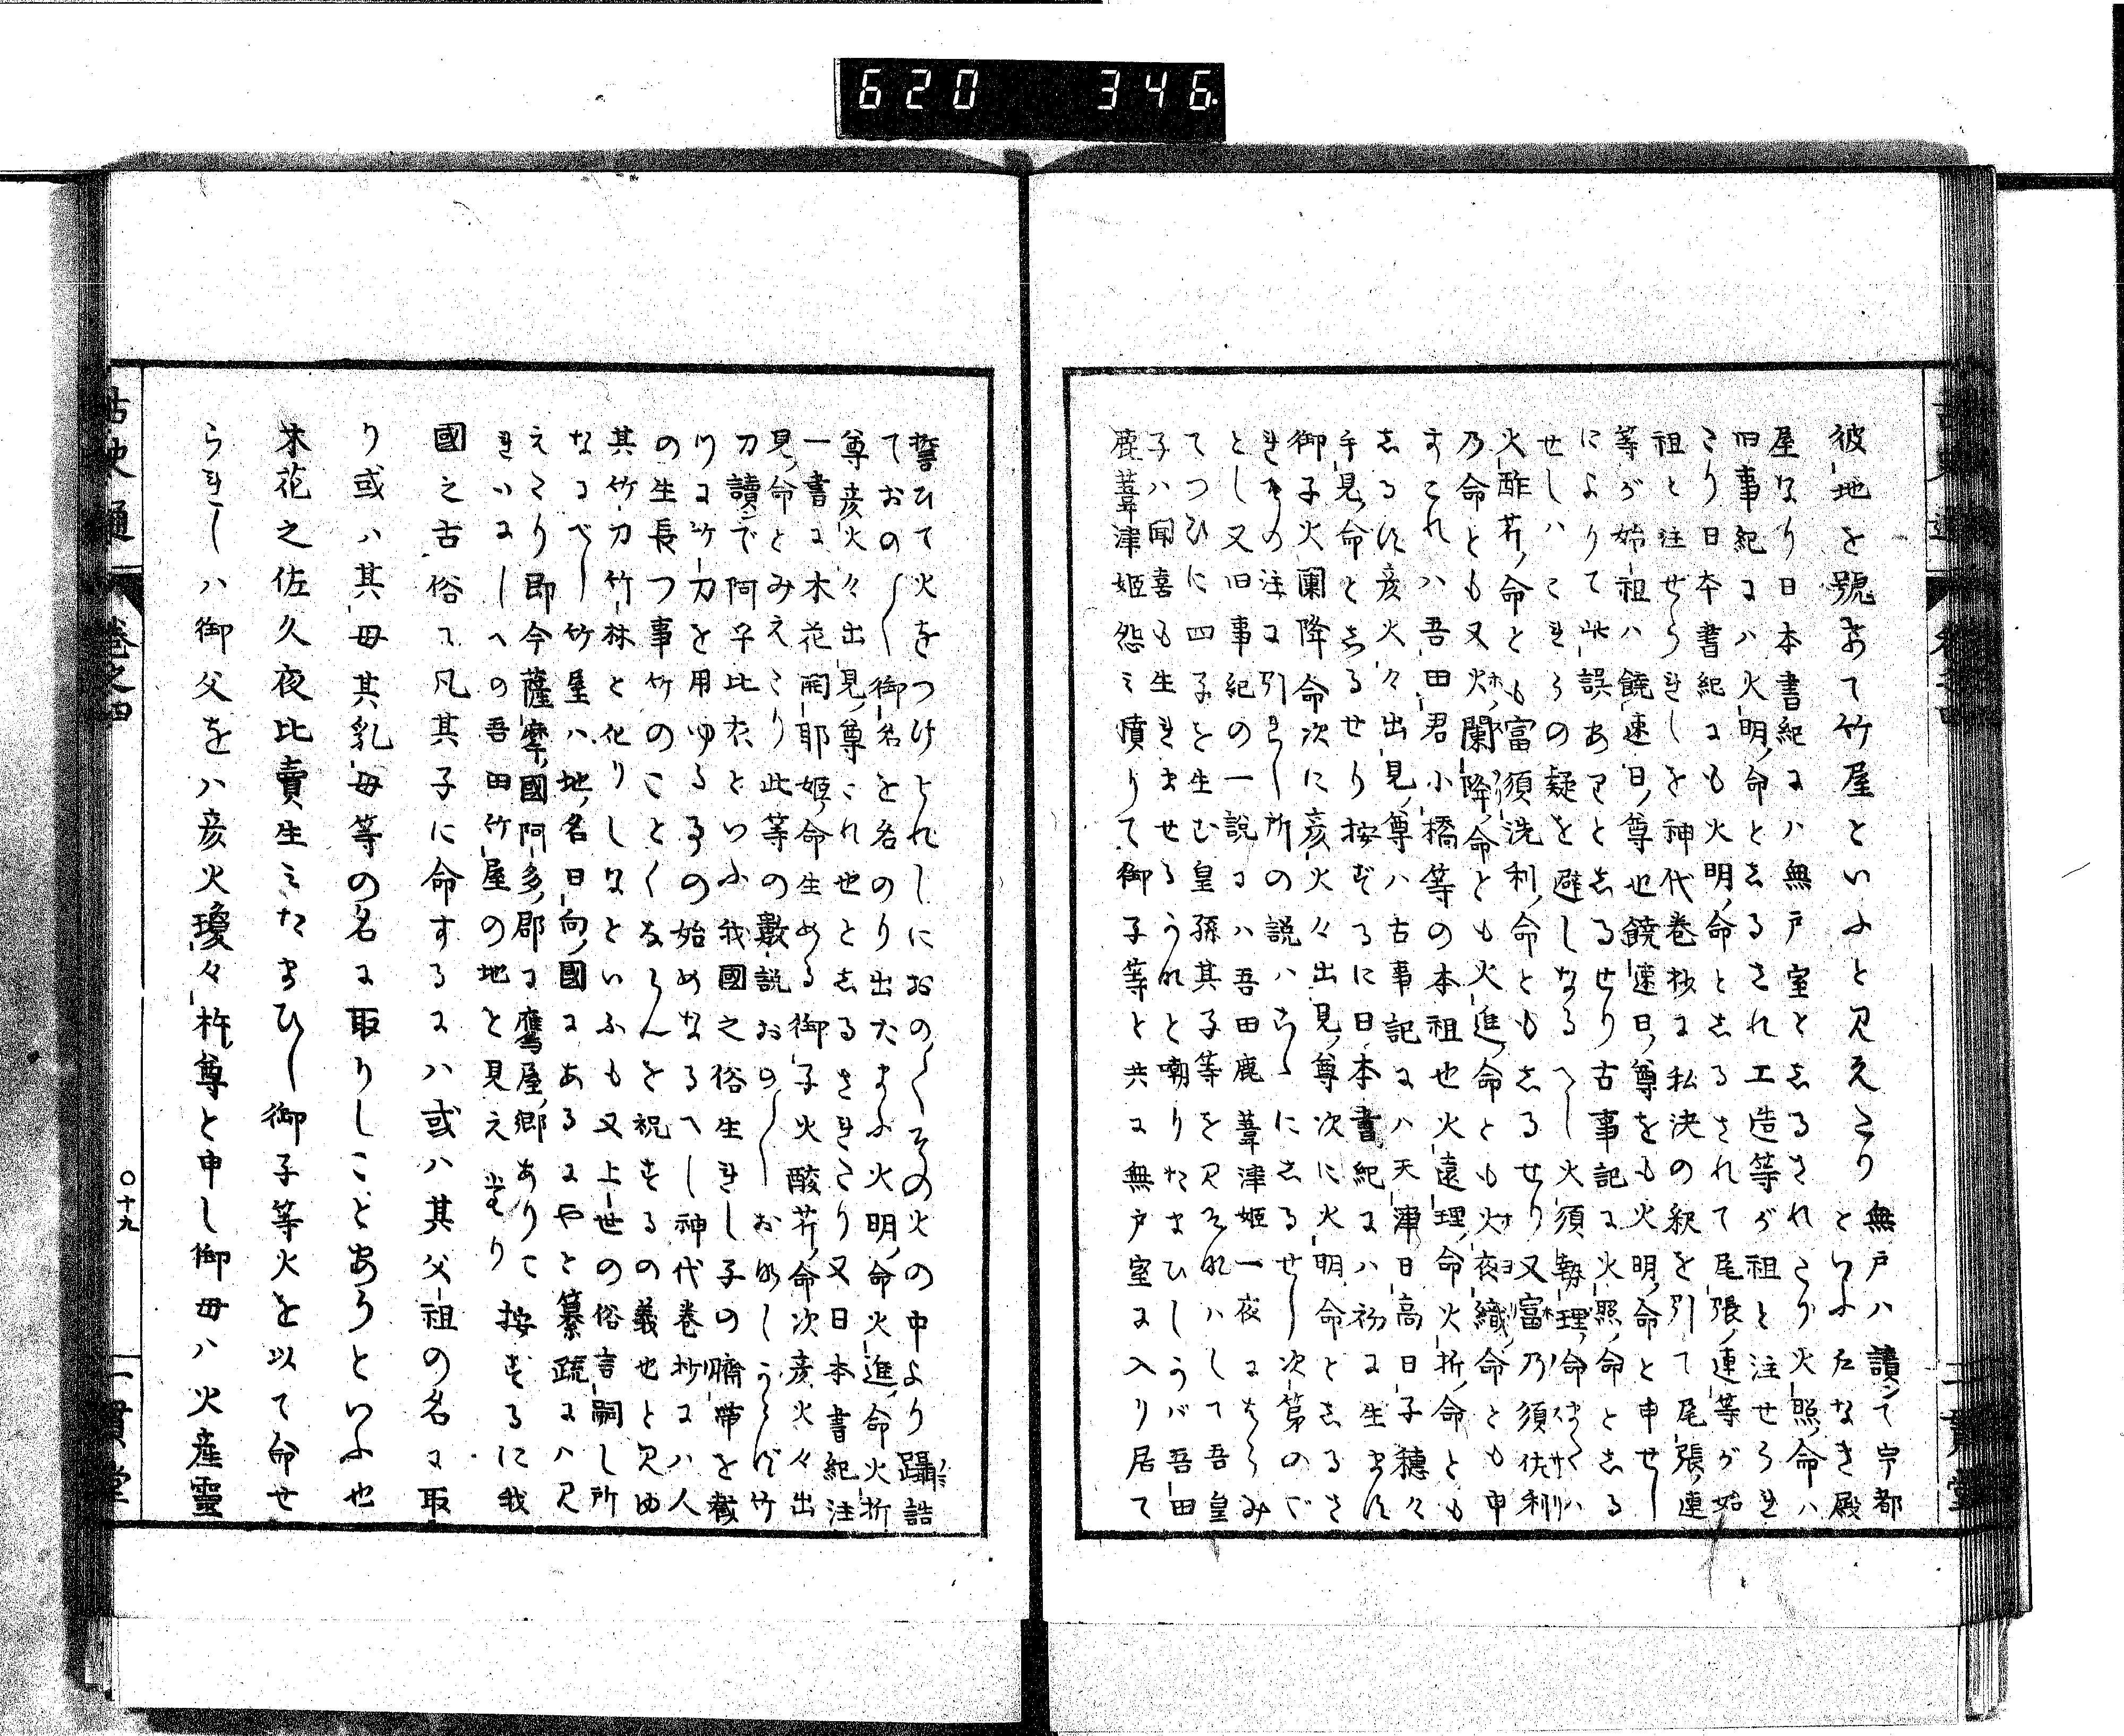 620 346
彼地を號おて竹屋といふと見えたり 無戸ハ讀て宇都
といふ戸なき殿
屋なり日本書紀にハ無戸室としるされたり火照命ハ
旧事紀にハ火明命としるされ工造等が祖と注せられ
たり日本書紀にも火明命としるされて尾張連等が始
祖と注せられしを神代巻抄に私決の釈を引て尾張連
等が始祖ハ饒速日尊也饒速日尊をも火明命と申せし
によりて此誤ありとしるせり古事記に火照命としる
せしハこれらの疑を避しなるへし火須勢理命またハ
火酢芹命とも富須洗利命ともしるせり又富乃須佐利
乃命とも又火闌降命とも火進命とも火夜織命とも申
すこれハ吾田君小橋等の本祖也火遠理命火折命とも
しるす彦火々出見尊ハ古事記にハ天津日高日子穂々
手見命としるせり按ずるに日本書紀にハ初に生ます
御子火闌降命次に彦火々出見尊次に火明命としるさ
れその注に引れし所の説ハこゝにしるせし次第のご
とし又旧事紀の一説にハ吾田鹿葦津姫一夜にはらみ
てつひに四子を生む皇孫其子等を見そなハして吾皇
子ハ聞喜も生れませるうれと嘲りたまひしうバ吾田
鹿葦津姫怨ミ憤りて御子等と共に無戸室に入り居て
誓ひて火をつけとれしにおの〱その火の中より躡詰
ておの〱御名を名のり出たまふ火明命火進命火折
尊彦火々出見尊これ也としるされたり又日本書紀注
一書に木花開耶姫命生める御子火酸芹命次彦火々出
見命とみえたり此等の數説おの〱おなしうらず竹
刀讀で阿乎比衣といふ我國之俗生れし子の臍帯を截
りに竹刀を用ゆる事の始めなるへし神代巻抄にハ人
の生長つ事竹のことくならんを祝するの義也と見ゆ
其竹刀竹林と化りしなといふも又上世の俗言嗣し所
なるべし竹屋ハ地名日向國にあるにやと纂疏にハ見
えたり即今薩摩國阿多郡に鷹屋郷ありて
きいにしへの吾田竹屋の地と見えたり 按するに我
國之古俗て凡其子に命するにハ或ハ其父祖の名に取
り或ハ其母其乳母等の名に取りしことありといふ也
木花之佐久夜比賣生ミたまひし御子等火を以て命せ
られしハ御父をハ彦火瓊々杵尊と申し御母ハ火産靈
古史通 巻之四
〇十九
一貫堂